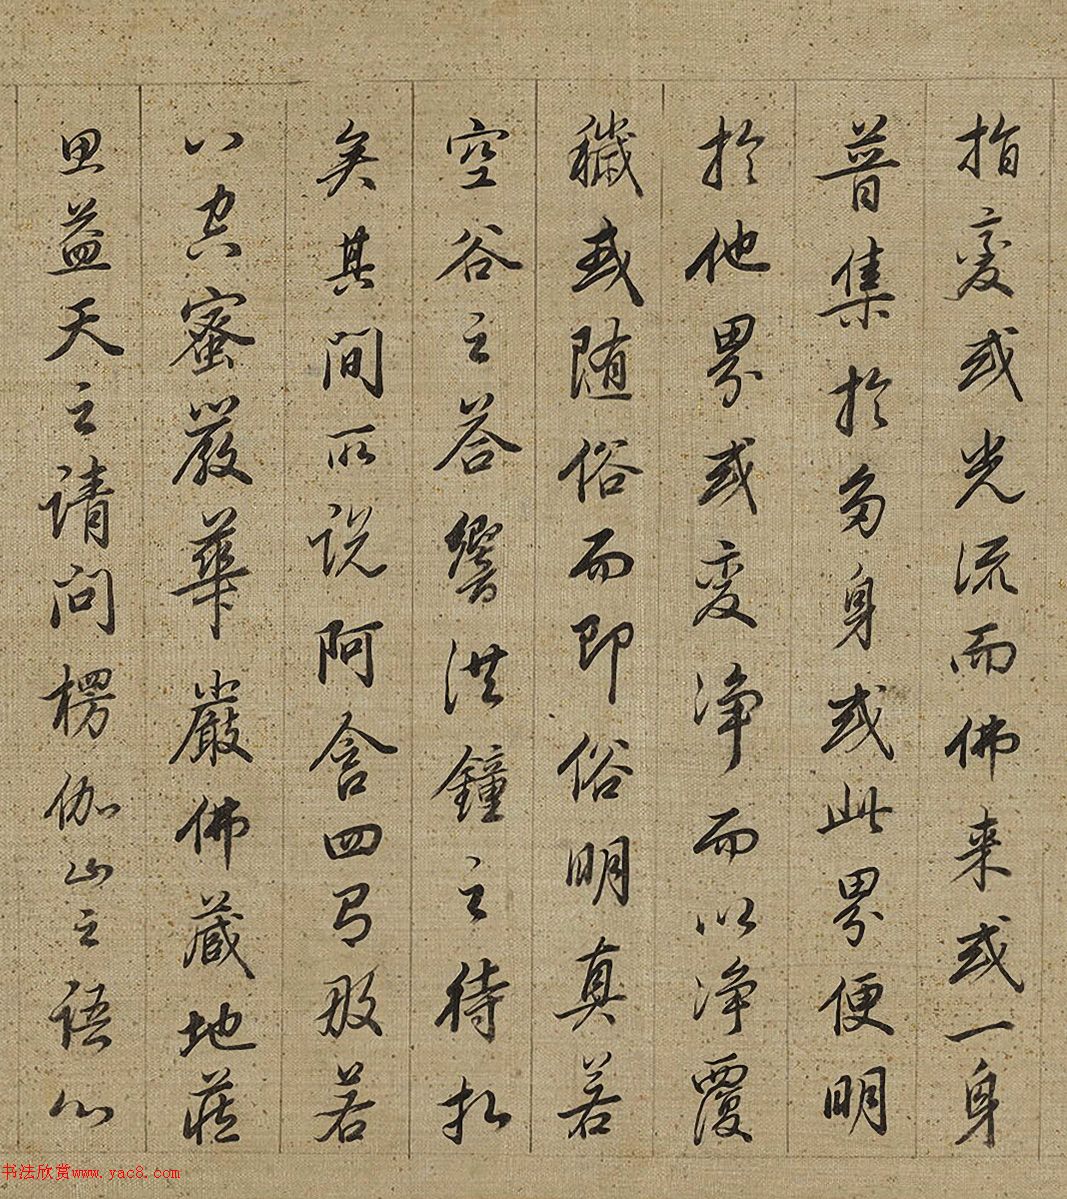 指變或光流而佛来或一身
普集於多身或此界便明
於他界或變净而以净覆
穢或随俗而即俗明真若
空谷之答響洪鐘之待扣
矣其間所说阿含四有般若
八空蜜嚴華嚴佛藏地藏
思益天之请问楞伽山之语心
书法欣赏www.yac8.com